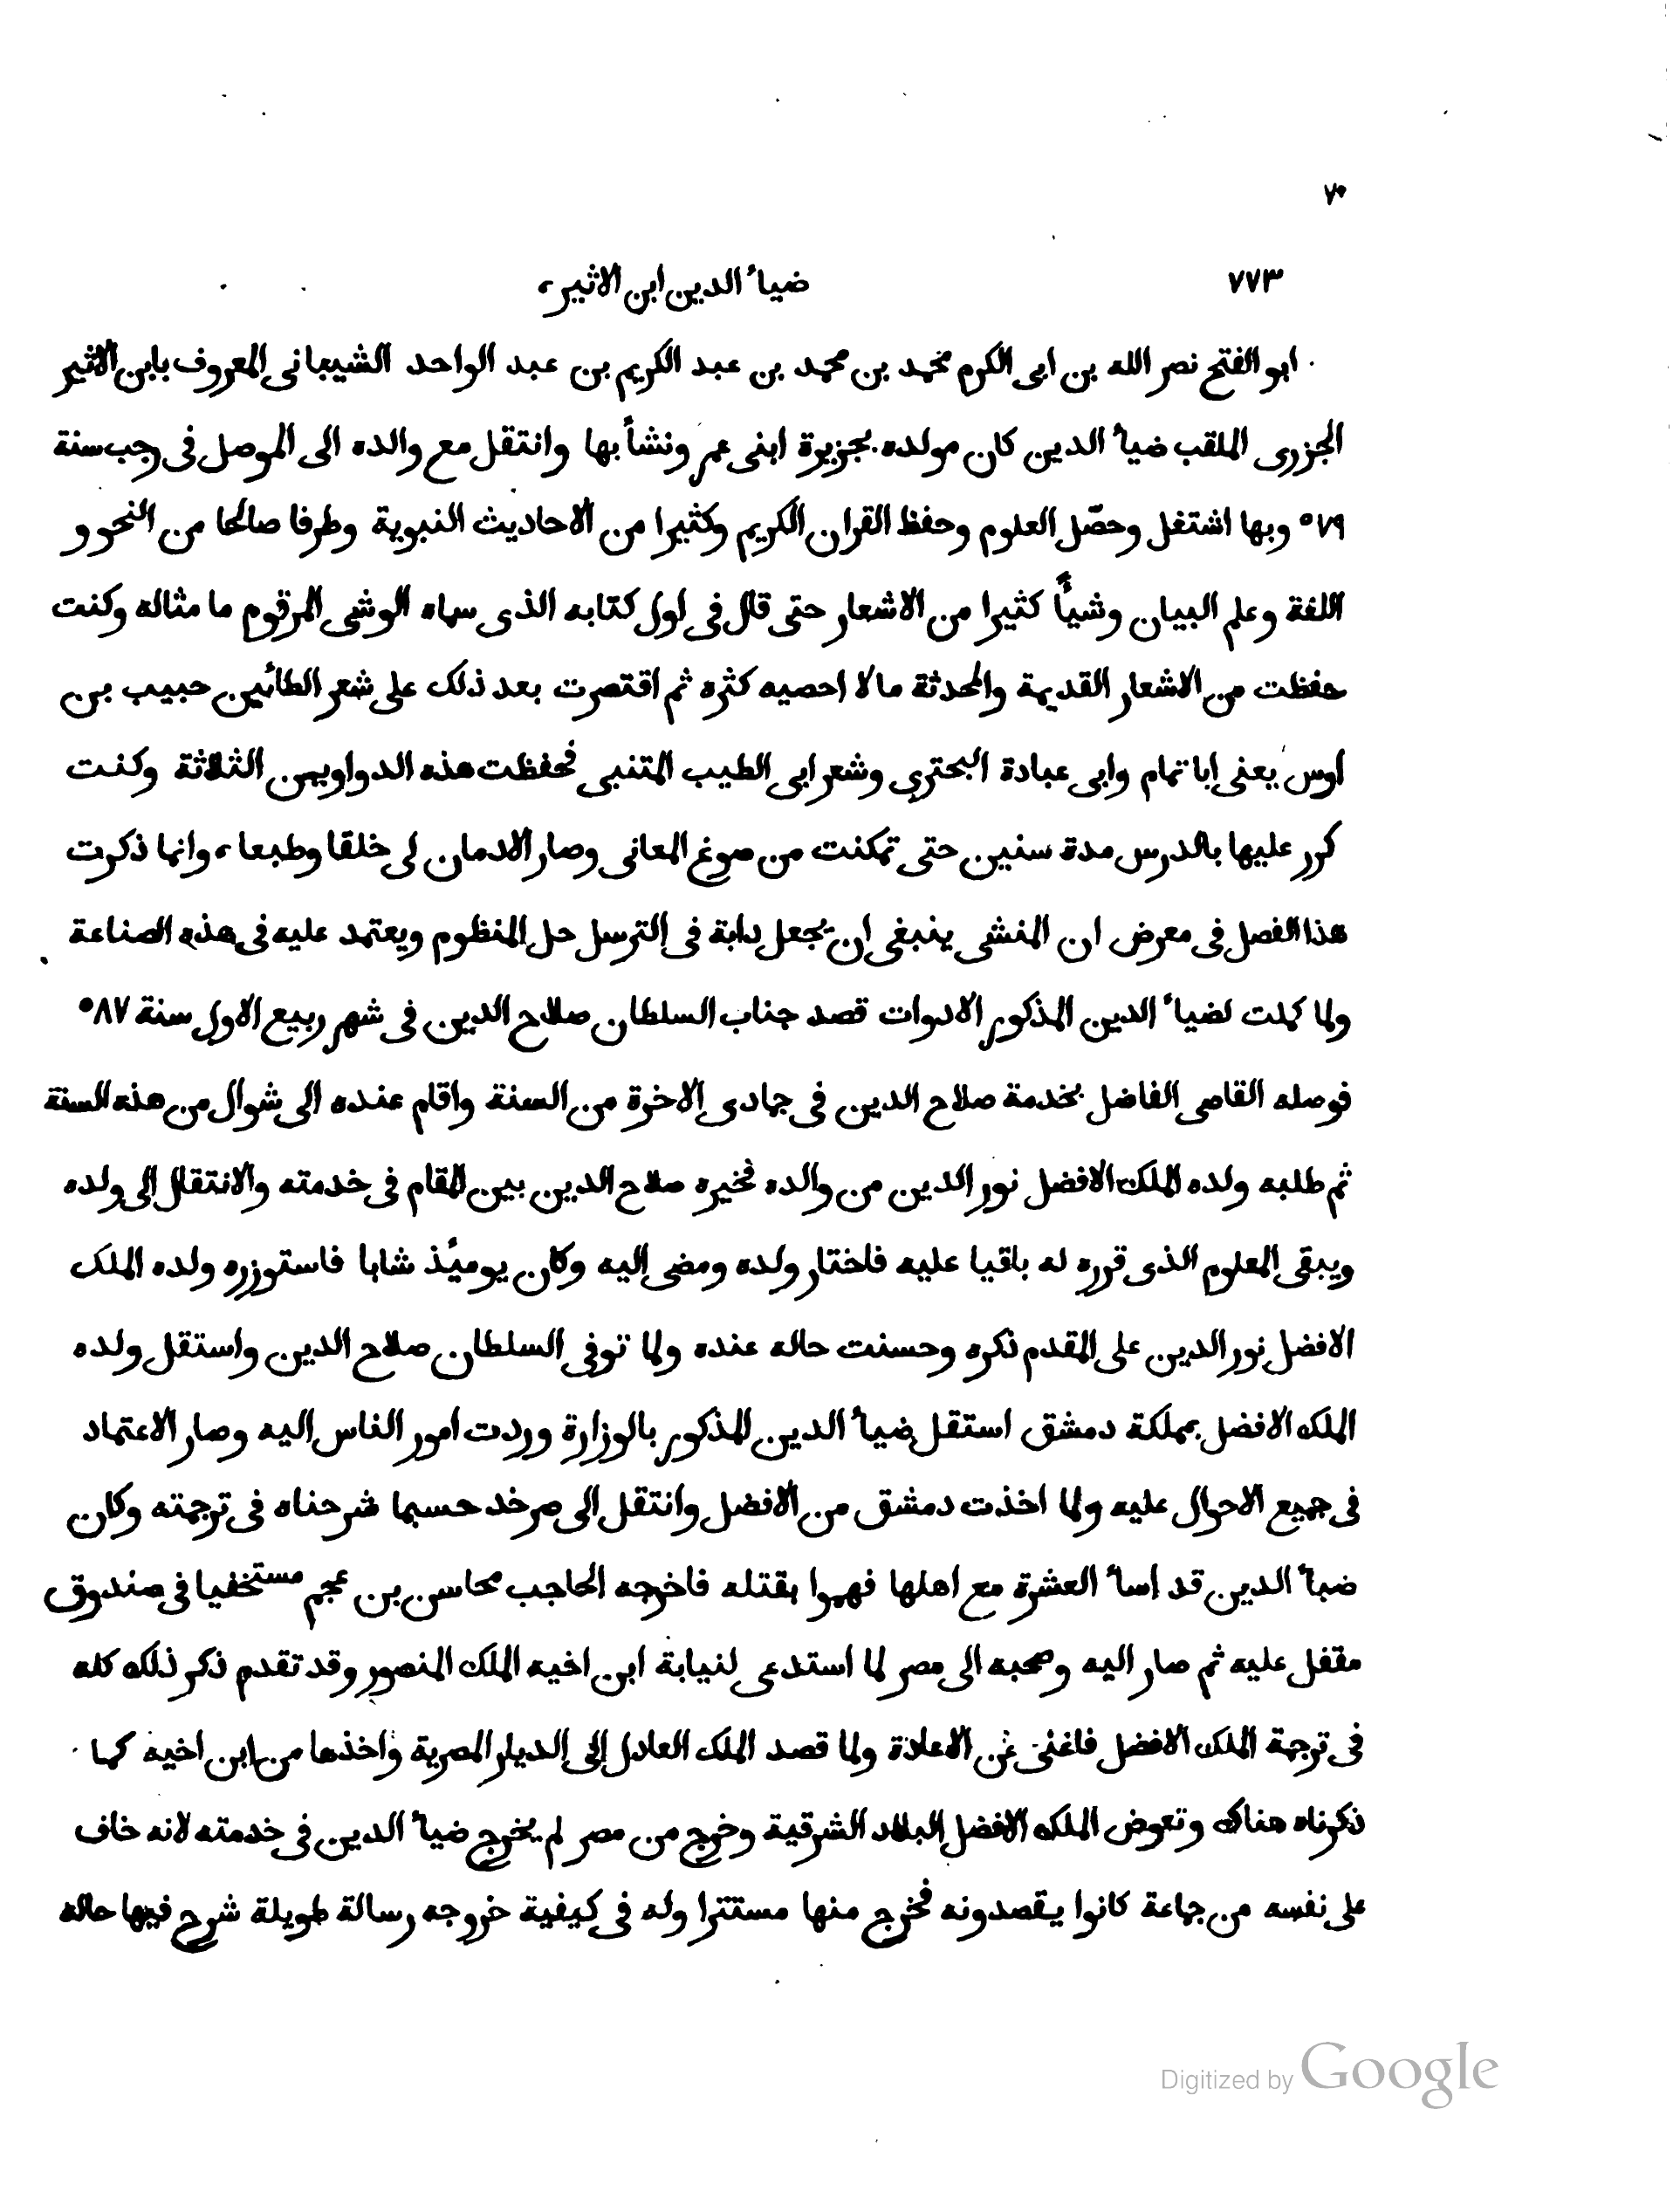 ٧٠
٧٧٣ ضياءُ الدين ابن الاثير،
ابو الفتح نصر الله بن ابى الكرم محمد بن محمد بن عبد الكريم بن عبد الواحد الشيبانى المعروف بابن الاثير
الجزرى الملقب ضياءُ الدين كان مولده بجزيرة ابنى عمر ونشأ بها وانتقل مع والده الى الموصل فى رجب سنة
٥٧٩ وبها اشتغل وحصّل العلوم وحفظ القران الكريم وكثيرا من الاحاديث النبوية وطرفا صالحا من النحو و
اللغة وعلم البيان وشيأً كثيرا من الاشعار حتى قال فى اول كتابه الذى سماه الوشى المرقوم ما مثاله وكنت
حفظت من الاشعار القديمة والمحدثة مالا احصيه كثره ثم اقتصرت بعد ذلك على شعر الطائين حبيب بن
اوس يعنى ابا تمام وابى عبادة البحترى وشعر ابى الطيب المتنبى فحفظت هذه الدواوين الثلاثة وكنت
كرر عليها بالدرس مدة سنين حتى تمكنت من صوغ المعانى وصار الادمان لى خلقا وطبعا، وانما ذكرت
هذا الفصل فى معرض ان المنشى ينبغى ان يجعل دابة فى الترسل حل المنظوم ويعتمد عليه فى هذه الصناعة
ولما كملت لضياءُ الدين المذكور الادوات قصد جناب السلطان صلاح الدين فى شهر ربيع الاول سنة ٥٨٧
فوصله القاصى الفاضل بخدمة صلاح الدين فى جمادى الاخرة من السنة واقام عنده الى شوال من هذه السنة
ثم طلبه ولده الملك الافضل نور الدين من والده فخيره صلاح الدين بين المقام فى خدمته والانتقال الى ولده
ويبقى المعلوم الذى قرره له باقيا عليه فاختار ولده ومضى اليه وكان يوميُذ شابا فاستوزره ولده الملك
الافضل نور الدين على المقدم ذكره وحسنت حاله عنده ولما توفى السلطان صلاح الدين واستقل ولده
الملك الافضل بمملكة دمشق استقل ضياءُ الدين المذكور بالوزارة وردت امور الناس اليه وصار الاعتماد
فى جميع الاحوال عليه ولما اخذت دمشق من الافضل وانتقل الى صرخد حسبما شرحناه فى ترجمته وكان
ضياءُ الدين قد اساءُ العشرة مع اهلها فهموا بقتله فاخرجه الحاجب محاسن بن عجم مستخفيا فى صندوق
مقفل عليه ثم صار اليه وصحبه الى مصر لما استدعى لنيابة ابن اخيه الملك المنصور وقد تقدم ذكر ذلك كله
فى ترجمة الملك الافضل فاغنى عن الاعادة ولما قصد الملك العادل الى الديار المصرية واخذها من ابن اخيه كما
ذكرناه هناك وتعوض الملك الافضل البلاد الشرقية وخرج من مصر لم يخرج ضياءُ الدين فى خدمته لانه خاف
على نفسه من جماعة كانوا يقصدونه فخرج منها مستترا وله فى كيفية خروجه رسالة طويلة شرح فيها حاله
Digitized by Google